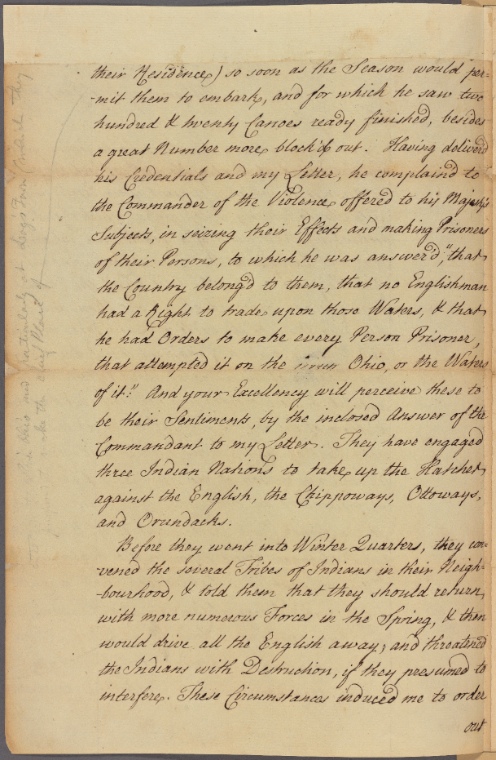 their Residence) so soon as the Season would per-
-mit them to embark, and for which he saw two
hundred & twenty Canoes ready finished, besides
a great Number more block'd out. Having deliverd
his Credentials and my Letter, he complaind to
the Commander of the Violence offered to his Majesty's
Subjects, in seizing their Effects and making Prisoners
of their Persons, to which he was answer'd, "that
the Country belong'd to them, that no Englishman
had a Right to trade upon those Waters, & that
he had Orders to make every Person Prisoner,
that attempted it on the Ohio, or the Waters
of it." And your Excellency will perceive these to
be their Sentiments, by the inclosed Answer of the
Commandant to my Letter. They have engaged
three Indian Nations to take up the Hatchet
against the English, the Chippoways, Ottoways,
and Orundacks.
Before they went into Winter Quarters, they con-
vened the several Tribes of Indians in their Neigh-
-bourhood, & told them that they should return
with more numerous Forces in the Spring, & then
would drive all the English away; and threatined
the Indians with Destruction, if they presumed to
interfere. These Circumstances induced me to order
out